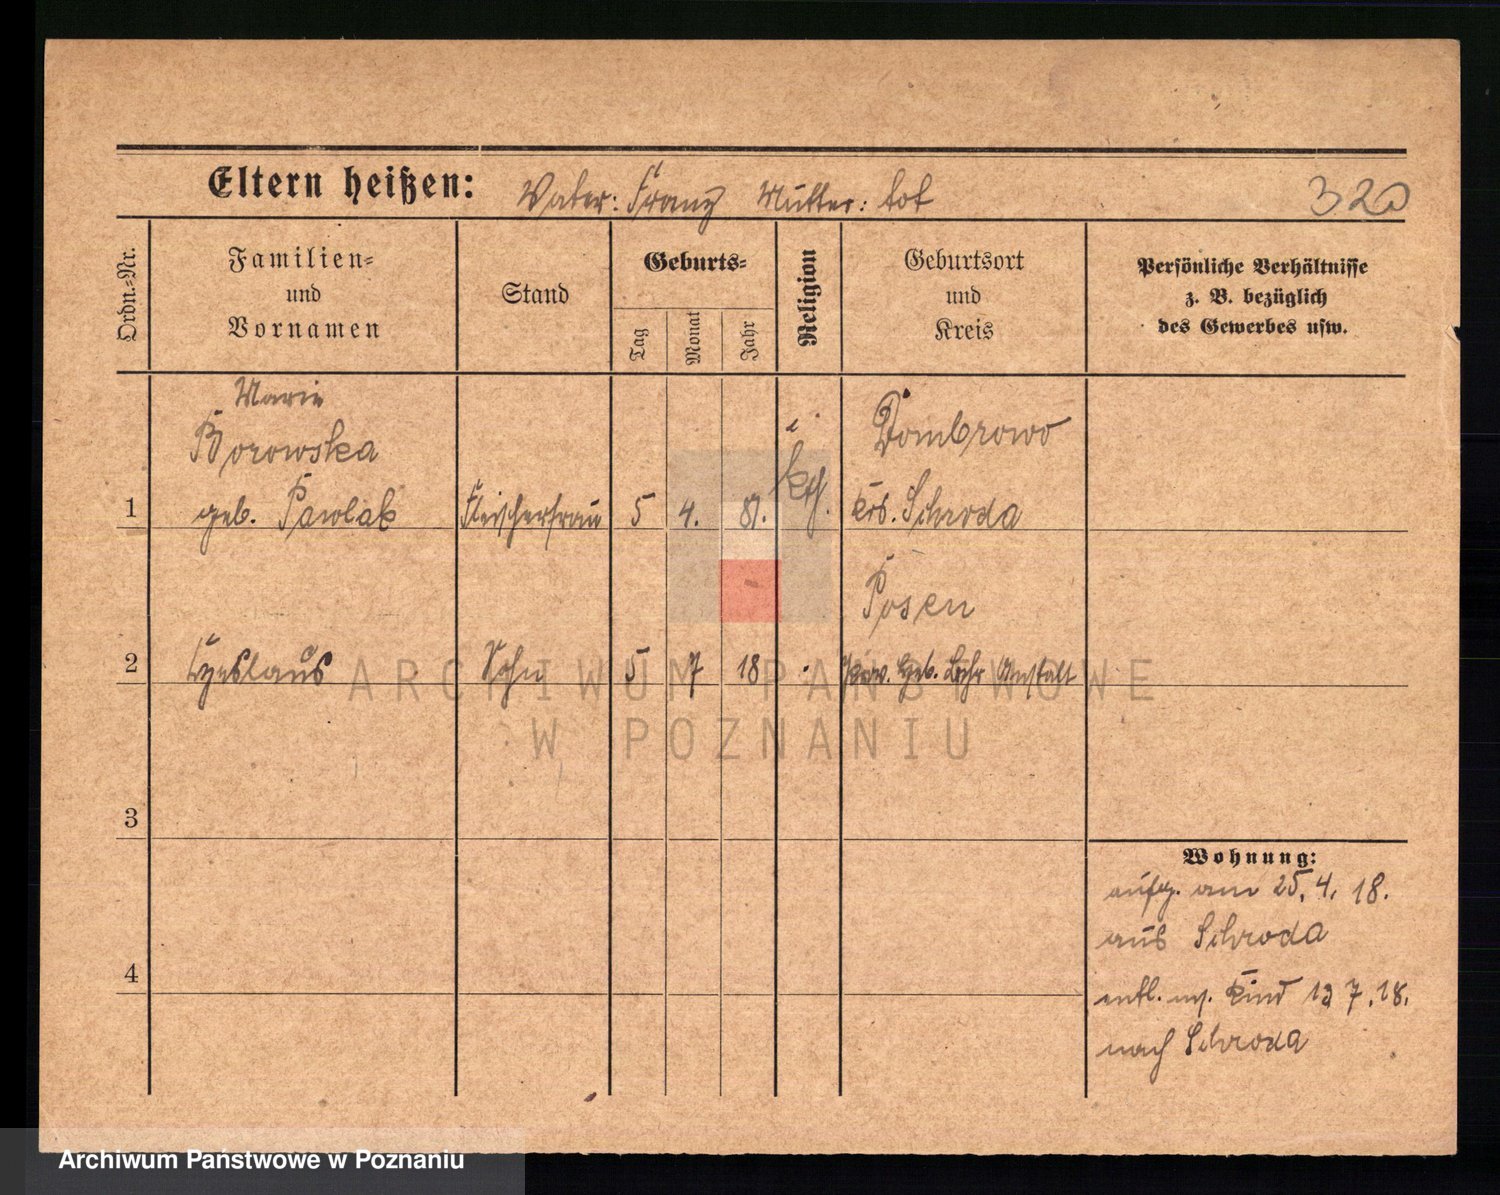 Eltern heißen: Vater: Franz Mutter: tot 320
Ordn.-Nr.
Familien-
und
Vornamen
Stand
Geburts-
Tag
Monat
Jahr
Religion
Geburtsort
und
Kreis
Persönliche Verhältnisse
z. B. bezüglich
des Gewerbes usw.
Marie
Borowska
Dombrowo
1 geb. Pawlak Fleischerfrau 5 4. 81. kth. Krs. Schroda
Posen
2 Czeslaus Sohn 5 7 18 Prov. Heb. Lehr Anstalt
3
Wohnung:
aufg. am 25. 4. 18.
aus Schroda
4
entl. m. Kind 7. 18.
nach Schroda
ARCHIWUM PAŃSTWOWE
W POZNANIU
Archiwum Państwowe w Poznaniu